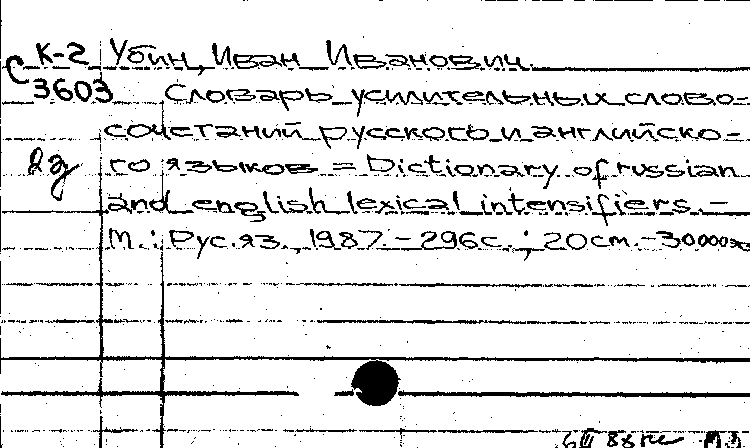 К-2 Убин, Иван Иванович.
С 3603 Словарь усилительных слово-
сочетаний русского и английско-
2д го языков = Dictionary of russian
and english lexical intensifiers. –
М.: Рус. яз., 1987. – 296с.; 20см. – 30000